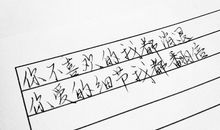 你不喜欢的我都消灵
你爱的细节我都翻倍